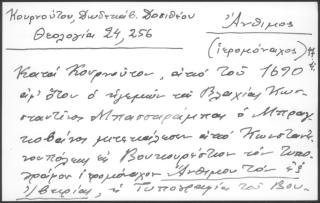 Κουρνούτου, Δωδεκάβ. Δοσιθέου
Θεολογία 24, 256
Ἄνθιμος
(ἱερομόναχος)
Κατά Κουρνοῦτον, ἀπό τοῦ 1690
ἀφ' ὅτου ὁ ἡγεμών τῆς Βλαχίας Κων-
σταντῖνος Μπασσαράμπας ὁ Μπραγ-
κοβάνος μετεκάλεσεν ἀπό Κωνσταντι-
νουπόλεως εἰς Βουκουρέστιον τόν τυπο-
γράφον ἱερομόναχον Ἄνθιμον τόν ἐξ
Ἰβηρίας, ἡ Τυπογραφία τοῦ Βου-